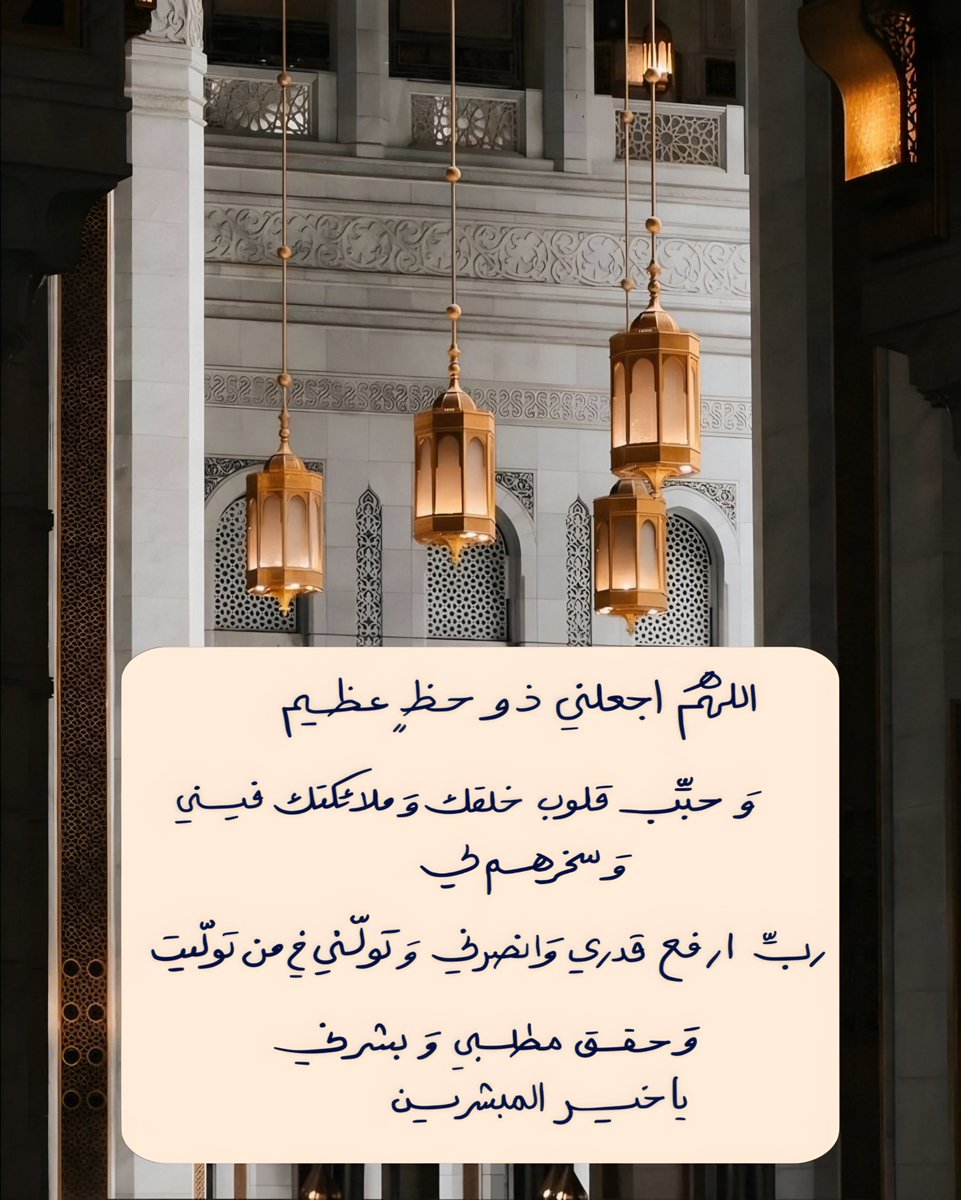 اللهمَّ اجعلني ذو حظٍ عظيم
وَ حبِّب قلوب خلقك وَ ملائكتك فيني
وَ سخرهم لي
ربِّ ارفع قدري وَانصرني وَ تَولّني في من تَولّيتَ
وَ حقق مطلبي وَ بشرني
يا خير المبشرين